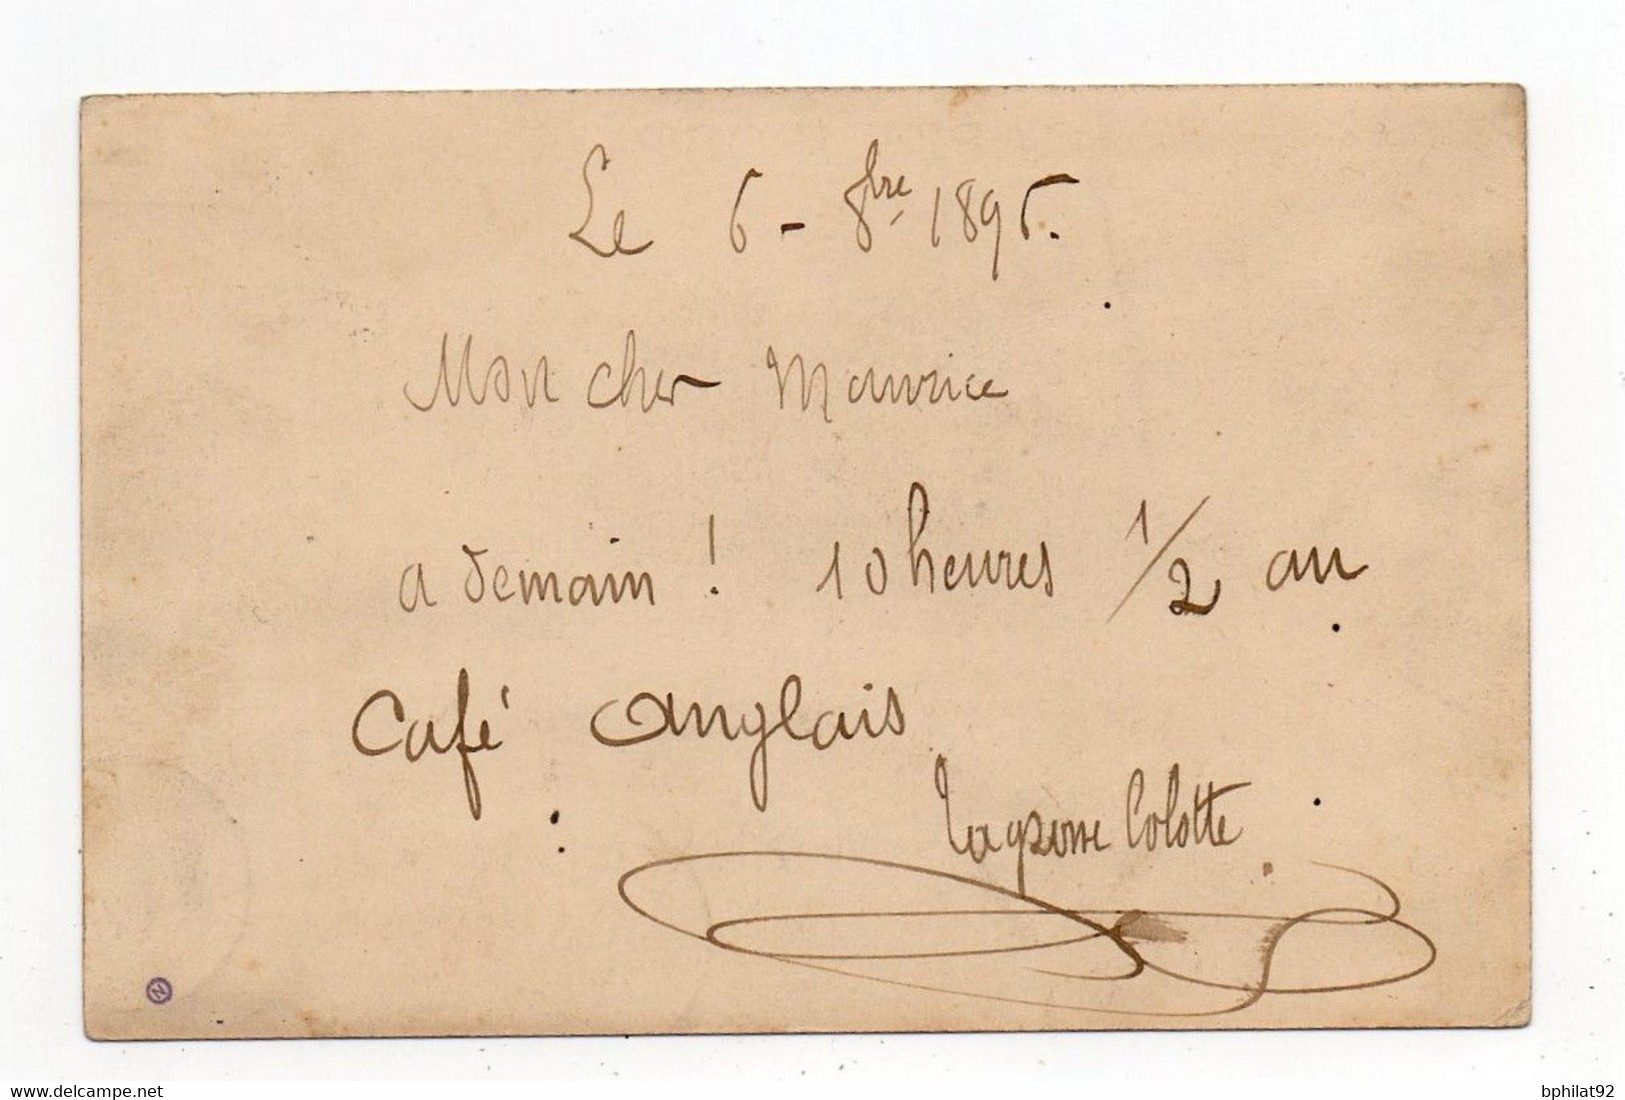 Le 6 - 8bre 1895.
Mon cher Maurice
a demain ! 10 heures 1/2 au
Café Anglais
Colotte
N
www.delcampe.net
bphilat92